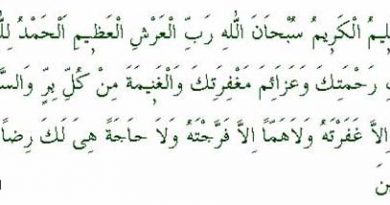 لِيمُ الْكَرِيمُ سُبْحَانَ اللهِ رَبِّ الْعَرْشِ الْعَظِيمِ اَلْحَمْدُ لِلّٰ
رَحْمَتِكَ وَعَزَائِمَ مَغْفِرَتِكَ وَالْغَنِيمَةَ مِنْ كُلِّ بِرٍّ وَالسَّ
اِلاَّ غَفَرْتَهُ وَلاَهَمًّا اِلاَّ فَرَّجْتَهُ وَلاَ حَاجَةً هِىَ لَكَ رِضًا